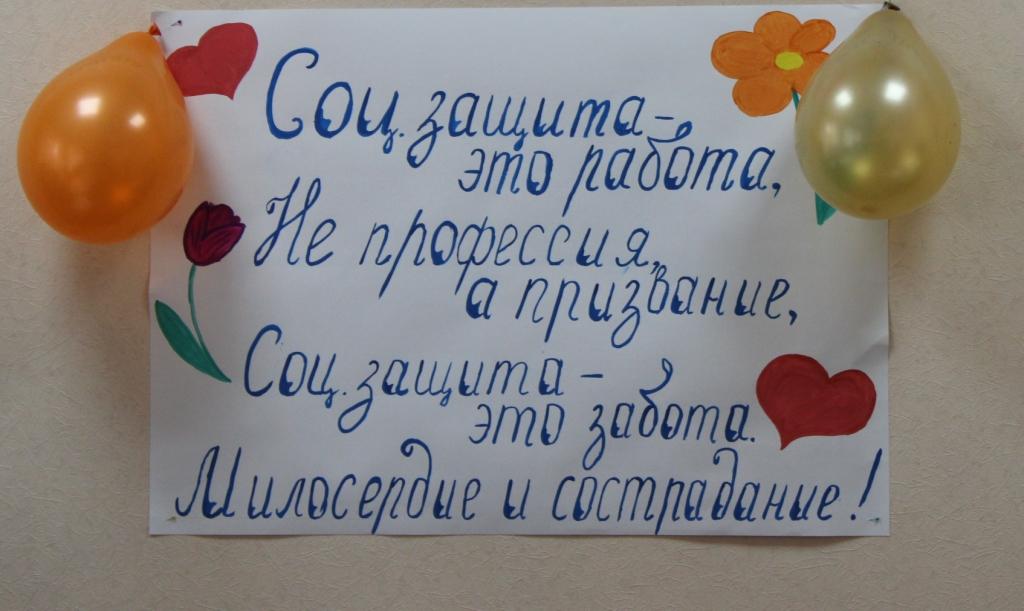 Соц. защита -
это работа,
Не профессия,
а призвание,
Соц. защита -
это забота.
Милосердие и сострадание!